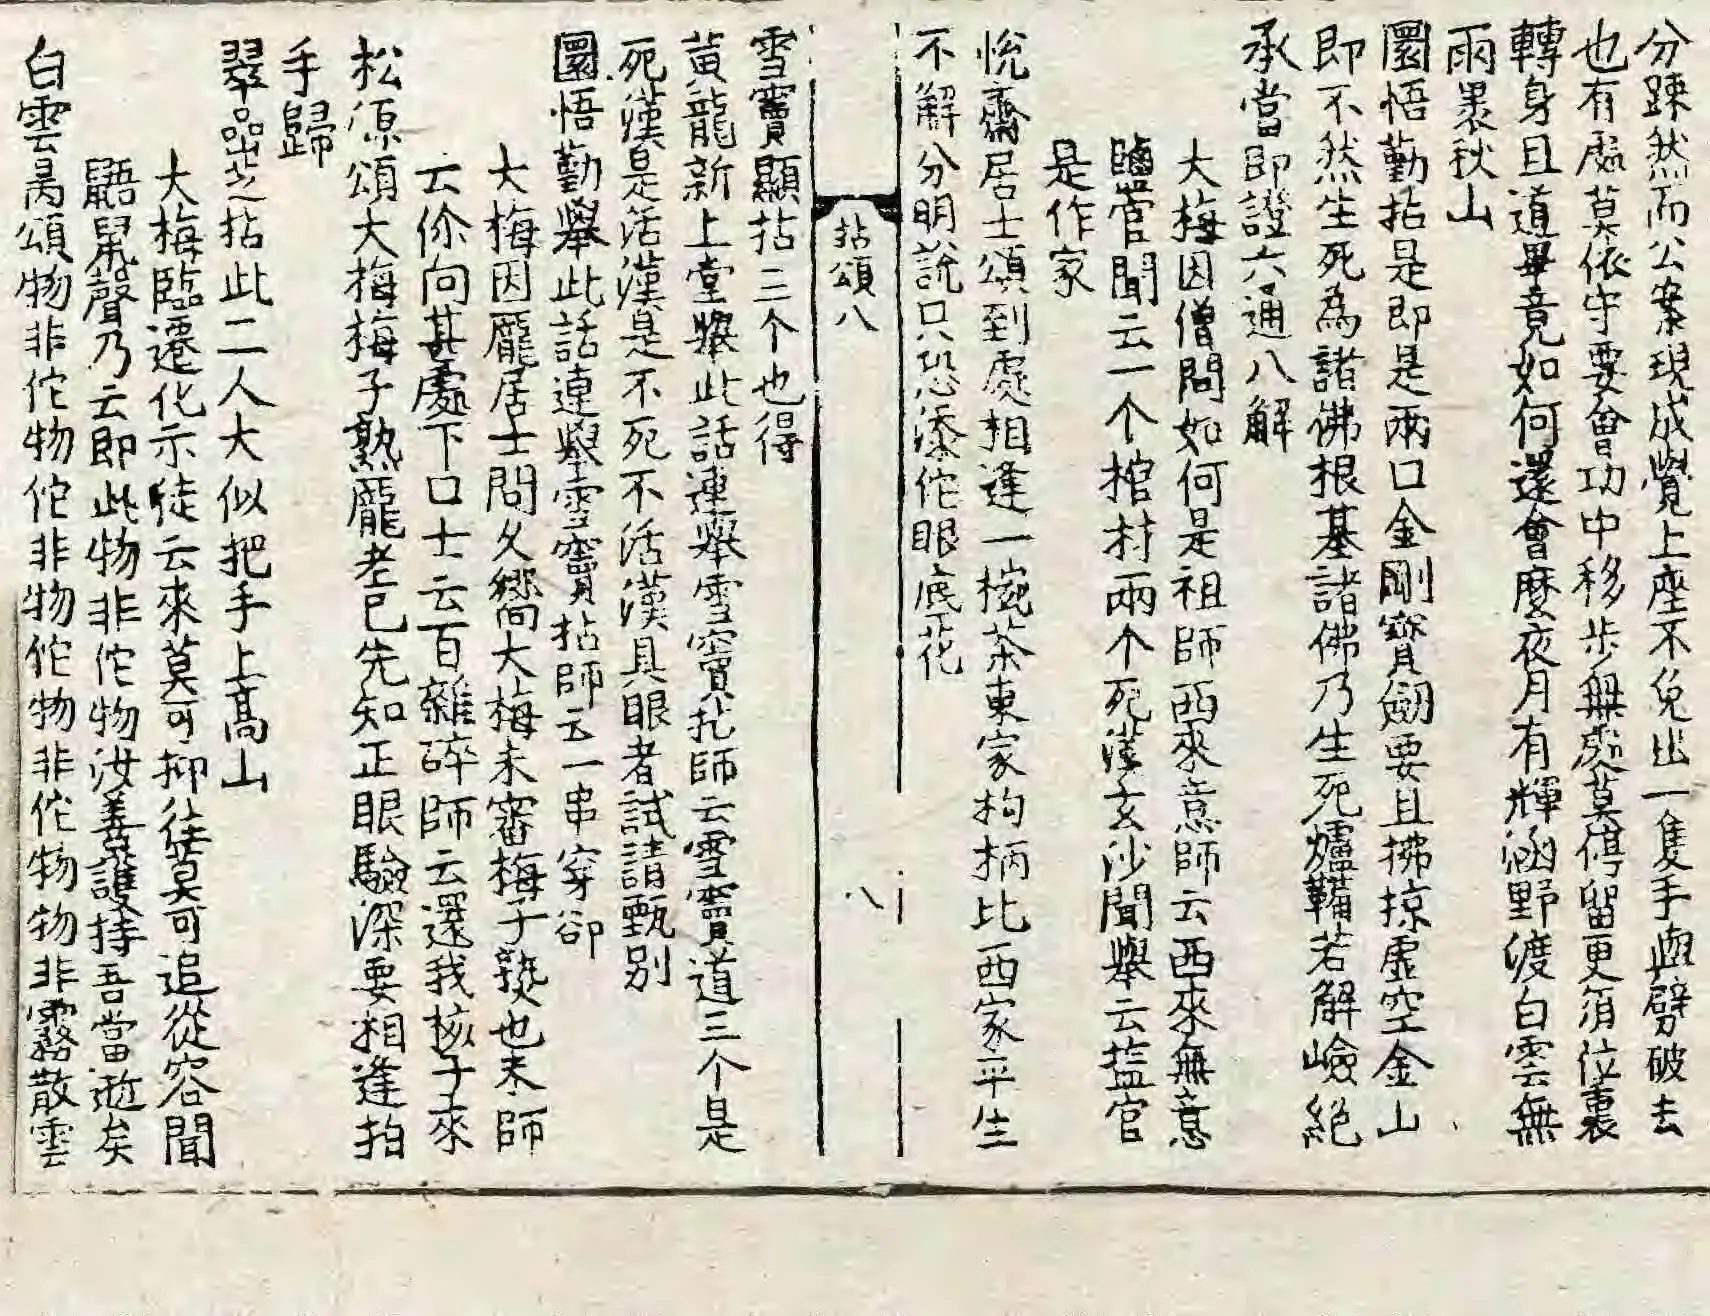 分踈然而公案現成覺上座不免出一隻手與劈破去
也有處莫依守要會功中移步無處莫停留更須位裏
轉身且道畢竟如何還會麼夜月有輝涵野渡白雲無
雨裹秋山
圜悟勤拈是即是兩口金剛寶劒要且拂掠虛空金山
即不然生死為諸佛根基諸佛乃生死爐鞴若解嶮絕
承當即證六通八解
大梅因僧問如何是祖師西來意師云西來無意
鹽官聞云一个棺材兩个死漢玄沙聞舉云盐官
是作家
悅齋居士頌到處相逢一椀茶東家杓柄比西家平生
不解分明說只恐添佗眼底花
拈頌八
八
雪竇顯拈三个也得
黃龍新上堂舉此話連舉雪竇拈師云雪竇道三个是
死漢是活漢是不死不活漢具眼者試請甄别
圜悟勤舉此話連舉雪竇拈師云一串穿卻
大梅因龐居士問久嚮大梅未審梅子熟也未師
云你向甚處下口士云百雜碎師云還我核子來
松源頌大梅梅子熟龐老已先知正眼驗深要相逢拍
手歸
翠嵒芝拈此二人大似把手上高山
大梅臨遷化示徒云來莫可抑往莫可追從容聞
鼯鼠聲乃云即此物非佗物汝善護持吾當逝矣
白雲昺頌物非佗物佗非物佗物非佗物物非霧散雲